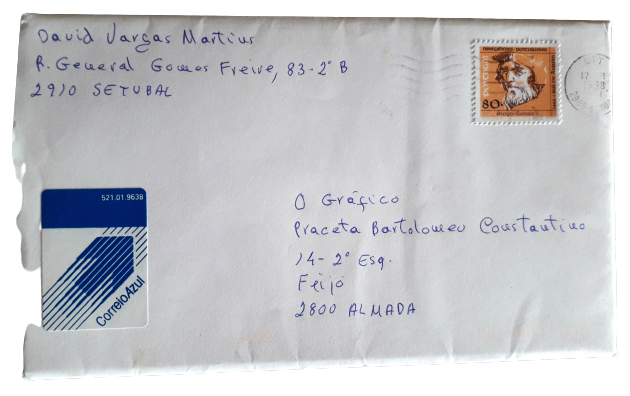 David Vargas Martins
R. General Gomes Freire, 83-2º B
2910 SETUBAL
80
521.01.9638
CorreioAzul
O Gráfico
Praceta Bartolomeu Constantino
14- 2º Esq.
Feijó
2800 ALMADA